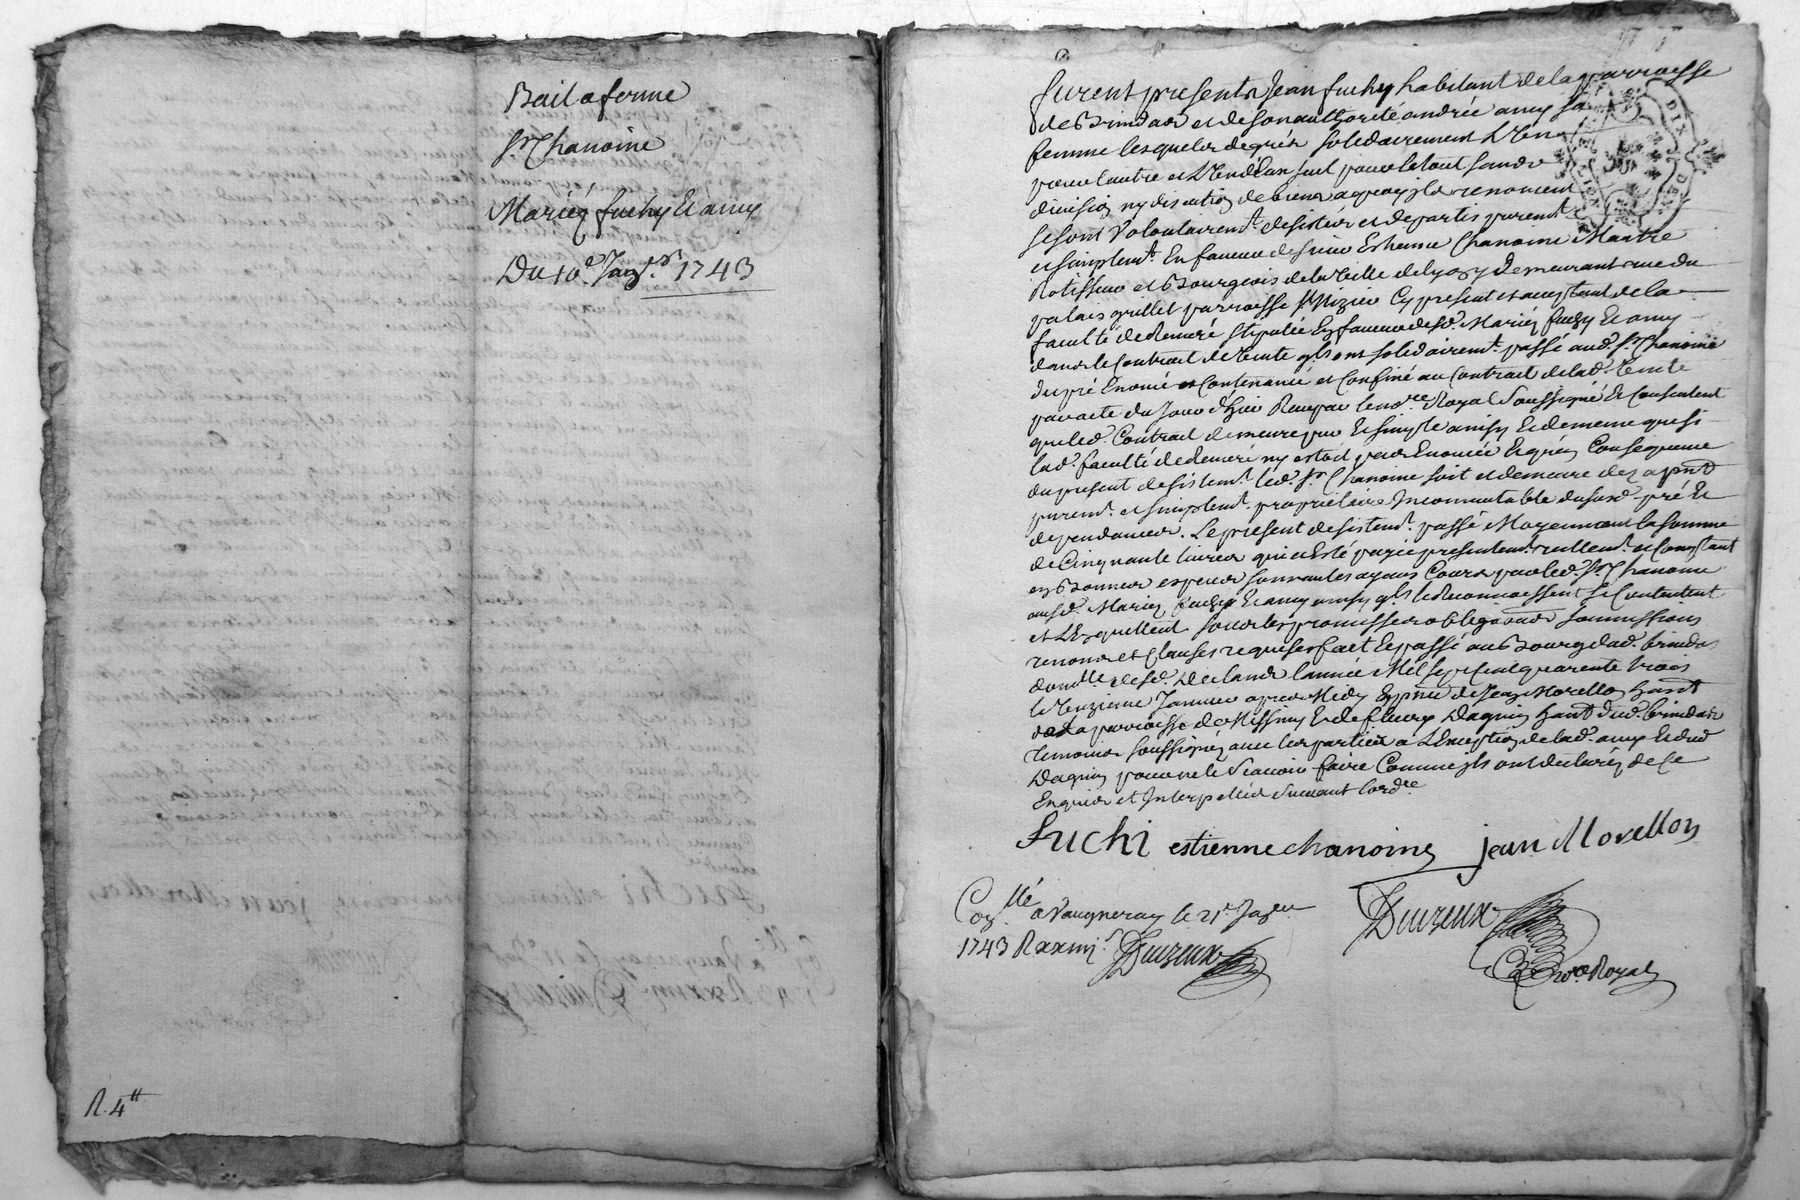 Bail a ferme
Sr. Chanoine
Mariéz fuchy Et amy
Du 10e. Janv.er 1743
R. 4tt
furent presents Jean fuchy habitant de la parroisse
de Brindas et de son authorité andrée amy sa
femme lesquels de gréz solidairement L'un
pour l'autre et L'un d'Eux seul pour le tout sans
division ny discution de biens a quoy ils renoncent
se sont Volontairemt. desistés et departis puremt.
et simplemt. En faveur de sieur Estienne Chanoine Maitre
Rotisseur et Bourgeois de la Ville de Lyon y demeurant rue du
palais grillet parroisse St. Nizier Cy present et acceptant de la
faculté de Remeré stipulée En faveur desd. Mariéz fuchy Et amy
dans le Contrat de Vente qls ont solidairemt. passé aud. Sr. Chanoine
du pré Enoncé et Contenancé et Confiné au Contrait de lad. Vente
par acte du Jour d'hier Reçu par le nore. Royal Soussigné Et Consentent
que led. Contrait demeure pur Et simple ainsy Et de meme que si
lad. faculté de Remeré ny estoit pas Enoncée Et qu'en Consequence
du present desistemt. led. Sr. Chanoine soit et demeure dez a pnt
puremt. et simplemt. proprietaire Incommutable dususd. pré Et
dependances. Le present desistemt. passé Moyennant la somme
de Cinquante livres qui a Esté payée presentemt. reellemt. et Comptant
en Bonnes especes sonnantes ayant Cours par led. Sr. Chanoine
ausd. Mariéz fuchy Et amy ainsy qls le Reconnoissent Se Contentent
et L'En quittent sous les promisses obligaons soumissions
renons et Clauses requises fait Et passé au Bourg dud. brindas
domlle. desd. declarans l'année Mil sept Cent quarente trois
le Onzieme Janvier apres Midy En pnce de Jean Morellon hant
de la parroisse de Messimy Et de fleury Daguin hant dud. brindas
temoins soussignéz avec les parties a L'Exception de lad. amy Et dud
Daguin pour ne le Scavoir faire Comme ils ont declaréz de Ce
Enquis et Interpellés suivant lordce
fuchi estienne chanoine jean Morellon
Conlle. à Vaugneray le 21e. Janer.
1743 R xxiiijs. Duizeux
Duizeux
Nore. Royal